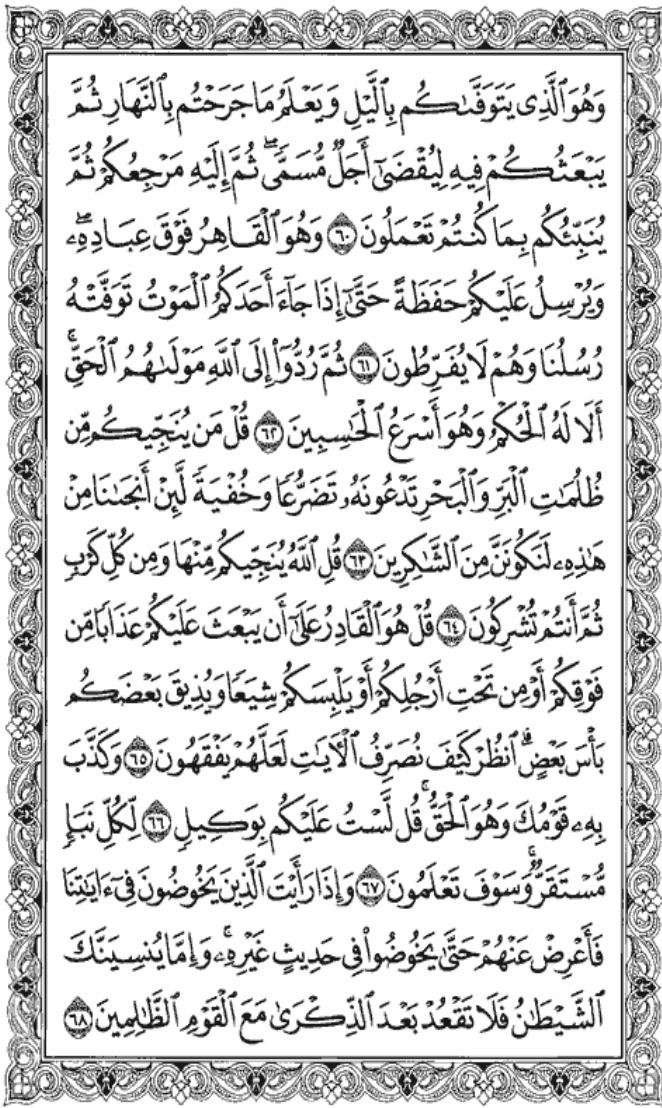 وَهُوَ ٱلَّذِى يَتَوَفَّىٰكُم بِٱلَّيْلِ وَيَعْلَمُ مَا جَرَحْتُم بِٱلنَّهَارِ ثُمَّ
يَبْعَثُكُمْ فِيهِ لِيُقْضَىٰٓ أَجَلٌ مُّسَمًّى ۖ ثُمَّ إِلَيْهِ مَرْجِعُكُمْ ثُمَّ
يُنَبِّئُكُم بِمَا كُنتُمْ تَعْمَلُونَ ٦٠ وَهُوَ ٱلْقَاهِرُ فَوْقَ عِبَادِهِۦ ۖ
وَيُرْسِلُ عَلَيْكُمْ حَفَظَةً حَتَّىٰٓ إِذَا جَآءَ أَحَدَكُمُ ٱلْمَوْتُ تَوَفَّتْهُ
رُسُلُنَا وَهُمْ لَا يُفَرِّطُونَ ٦١ ثُمَّ رُدُّوٓا۟ إِلَى ٱللَّهِ مَوْلَىٰهُمُ ٱلْحَقِّ ۚ
أَلَا لَهُ ٱلْحُكْمُ وَهُوَ أَسْرَعُ ٱلْحَـٰسِبِينَ ٦٢ قُلْ مَن يُنَجِّيكُم مِّن
ظُلُمَـٰتِ ٱلْبَرِّ وَٱلْبَحْرِ تَدْعُونَهُۥ تَضَرُّعًا وَخُفْيَةً لَّئِنْ أَنجَىٰنَا مِنْ
هَـٰذِهِۦ لَنَكُونَنَّ مِنَ ٱلشَّـٰكِرِينَ ٦٣ قُلِ ٱللَّهُ يُنَجِّيكُم مِّنْهَا وَمِن كُلِّ كَرْبٍ
ثُمَّ أَنتُمْ تُشْرِكُونَ ٦٤ قُلْ هُوَ ٱلْقَادِرُ عَلَىٰٓ أَن يَبْعَثَ عَلَيْكُمْ عَذَابًا مِّن
فَوْقِكُمْ أَوْ مِن تَحْتِ أَرْجُلِكُمْ أَوْ يَلْبِسَكُمْ شِيَعًا وَيُذِيقَ بَعْضَكُم
بَأْسَ بَعْضٍ ۗ ٱنظُرْ كَيْفَ نُصَرِّفُ ٱلْـَٔايَـٰتِ لَعَلَّهُمْ يَفْقَهُونَ ٦٥ وَكَذَّبَ
بِهِۦ قَوْمُكَ وَهُوَ ٱلْحَقُّ ۚ قُل لَّسْتُ عَلَيْكُم بِوَكِيلٍ ٦٦ لِّكُلِّ نَبَإٍ
مُّسْتَقَرٌّ ۚ وَسَوْفَ تَعْلَمُونَ ٦٧ وَإِذَا رَأَيْتَ ٱلَّذِينَ يَخُوضُونَ فِىٓ ءَايَـٰتِنَا
فَأَعْرِضْ عَنْهُمْ حَتَّىٰ يَخُوضُوا۟ فِى حَدِيثٍ غَيْرِهِۦ ۚ وَإِمَّا يُنسِيَنَّكَ
ٱلشَّيْطَـٰنُ فَلَا تَقْعُدْ بَعْدَ ٱلذِّكْرَىٰ مَعَ ٱلْقَوْمِ ٱلظَّـٰلِمِينَ ٦٨